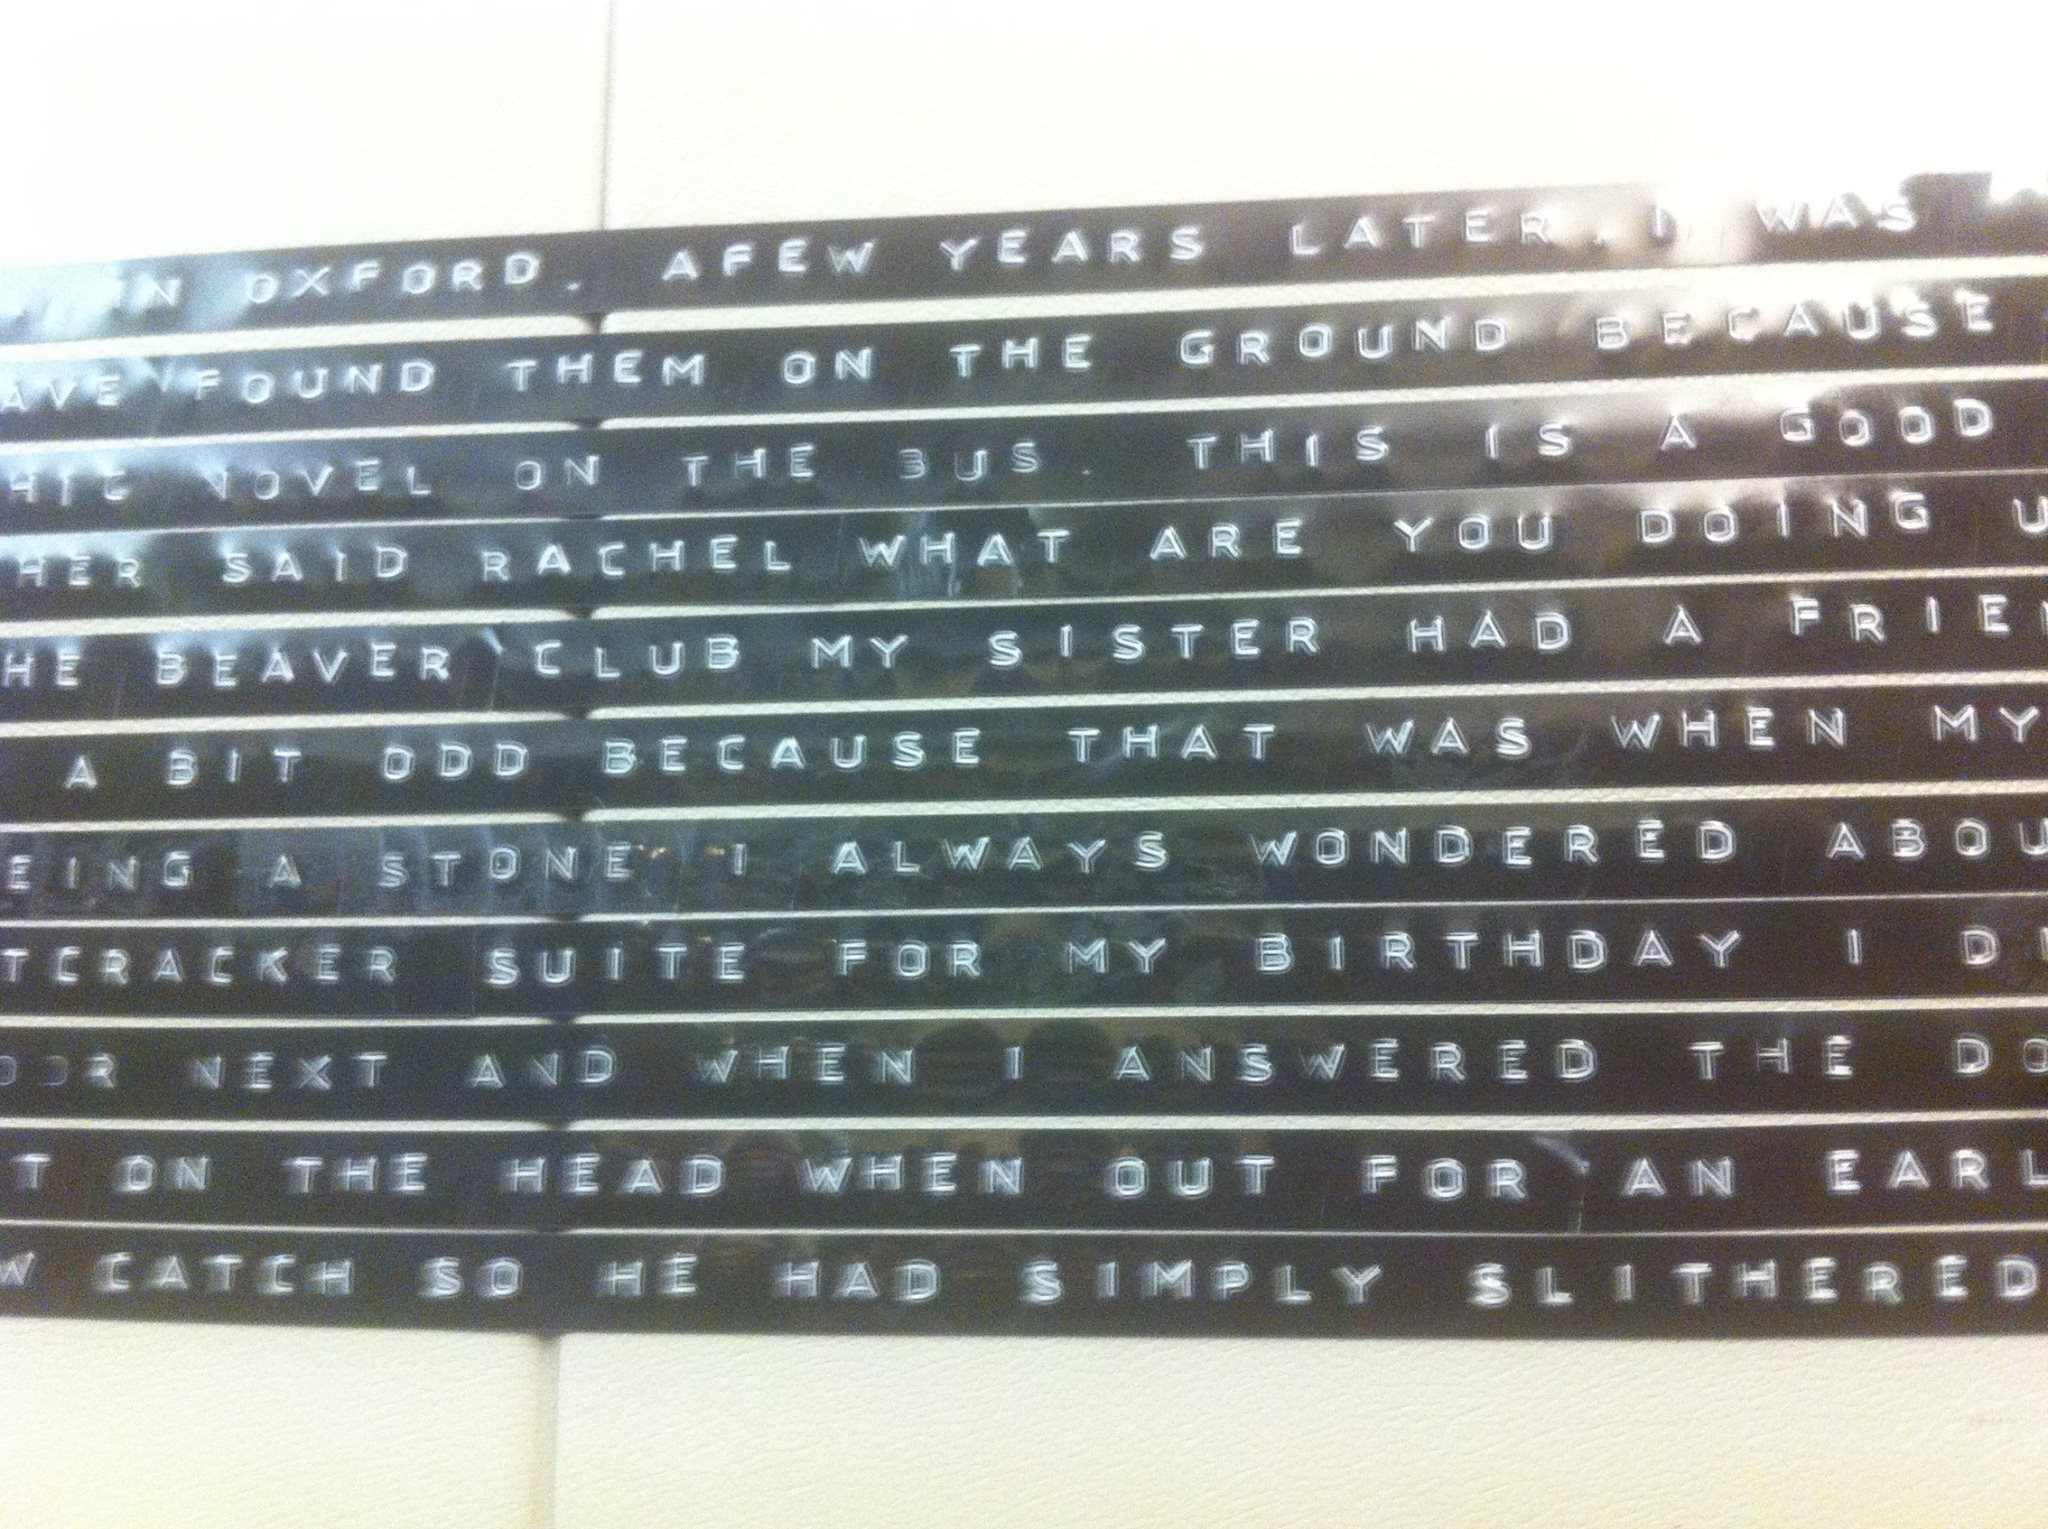 IN OXFORD. AFEW YEARS LATER, I WAS
AVE FOUND THEM ON THE GROUND BECAUSE
HIC NOVEL ON THE BUS. THIS IS A GOOD
HER SAID RACHEL WHAT ARE YOU DOING U
HE BEAVER CLUB MY SISTER HAD A FRIEN
A BIT ODD BECAUSE THAT WAS WHEN MY
EING A STONE I ALWAYS WONDERED ABOU
TCRACKER SUITE FOR MY BIRTHDAY I DI
OOR NEXT AND WHEN I ANSWERED THE DO
T ON THE HEAD WHEN OUT FOR AN EARL
W CATCH SO HE HAD SIMPLY SLITHERED